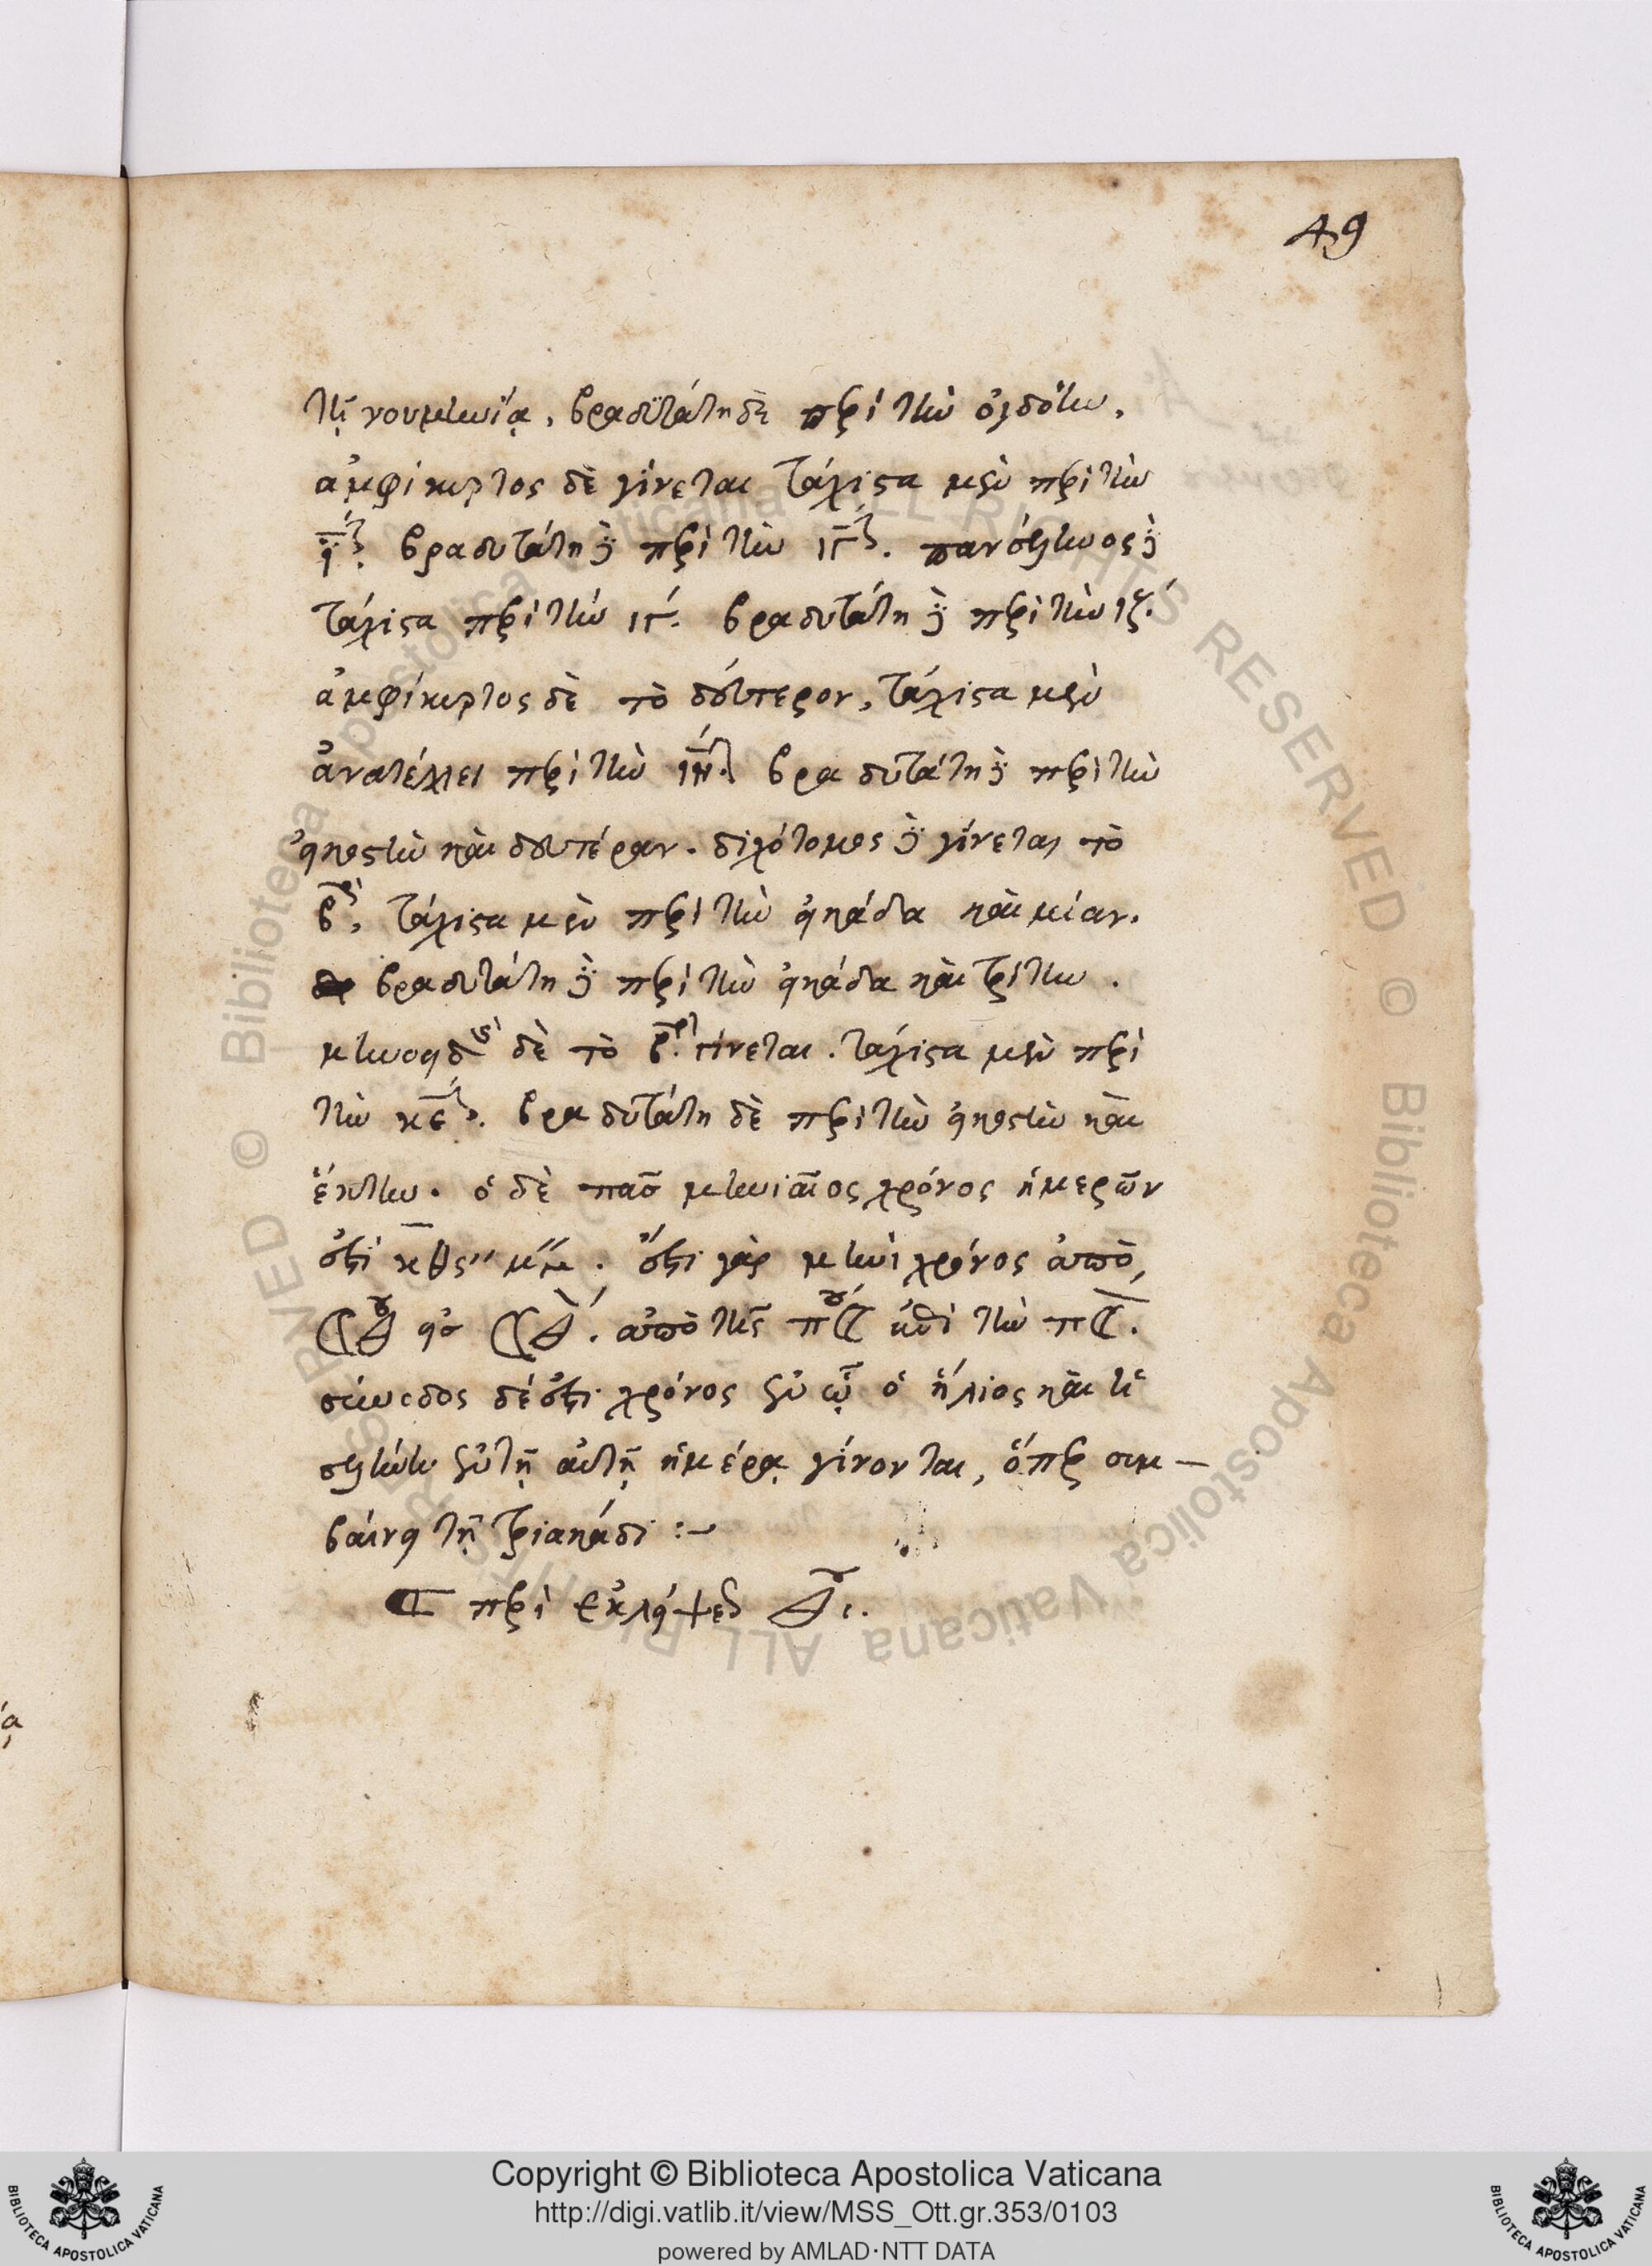 49
τῇ νουμηνίᾳ, βραδυτάτη δὲ περὶ τὴν ὀγδόην,
ἀμφίκυρτος δὲ γίνεται τάχιστα μὲν περὶ τὴν
βραδυτάτη δὲ περὶ τὴν ιγ. πανσέληνος δὲ
τάχιστα περὶ τὴν ιγ. βραδυτάτη δὲ περὶ τὴν ιζ.
ἀμφίκυρτος δὲ τὸ δεύτερον, τάχιστα μὲν
ἀνατέλλει περὶ τὴν ιη. βραδυτάτη δὲ περὶ τὴν
εἰκοστὴν καὶ δευτέραν. διχότομος δὲ γίνεται τὸ
β, τάχιστα μὲν περὶ τὴν εἰκάδα καὶ μίαν.
βραδυτάτη δὲ περὶ τὴν εἰκάδα καὶ τρίτην.
μηνοειδὴς δὲ τὸ β γίνεται. τάχιστα μὲν περὶ
τὴν κε. βραδυτάτη δὲ περὶ τὴν εἰκοστὴν καὶ
ἕκτην. ὁ δὲ πᾶς μηνιαῖος χρόνος ἡμερῶν
ἐστὶ κθ. ἔστι γὰρ μὴν χρόνος ἀπὸ
☾☍ εἰς ☾☍. ἀπὸ τῆς π☾ ἐπὶ τὴν π☾.
σύνοδος δέ ἐστι χρόνος ἐν ᾧ ὁ ἥλιος καὶ ἡ
σελήνη ἐν τῇ αὐτῇ ἡμέρᾳ γίνονται, ὅπερ συμ-
βαίνει τῇ τριακάδι :~
περὶ ἐκλείψεως
Copyright © Biblioteca Apostolica Vaticana
http://digi.vatlib.it/view/MSS_Ott.gr.353/0103
powered by AMLAD·NTT DATA
BIBLIOTECA APOSTOLICA VATICANA
BIBLIOTECA APOSTOLICA VATICANA